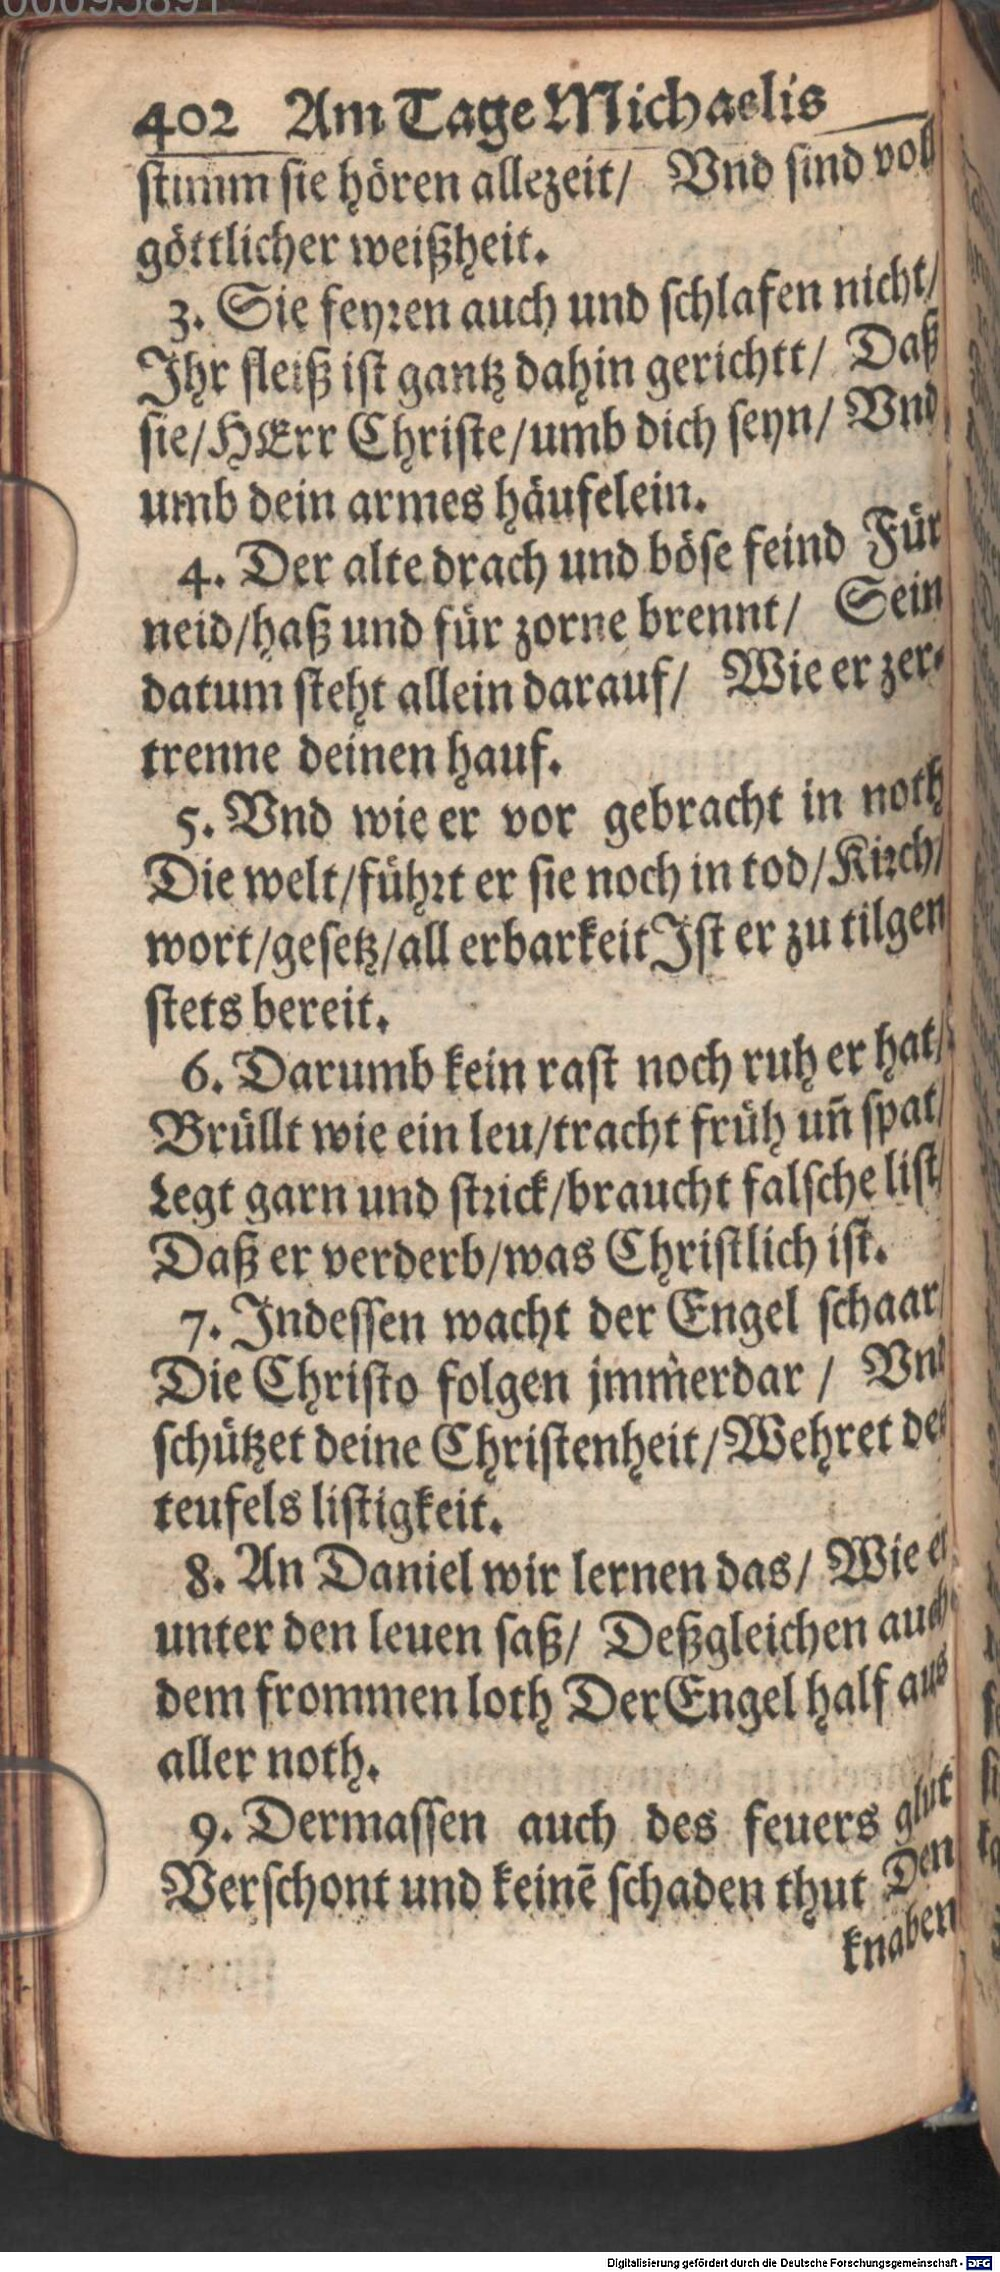 402 Am Tage Michaelis
stimm sie hören allezeit/ Vnd sind voll
göttlicher weißheit.
3. Sie feyren auch und schlafen nicht/
Ihr fleiß ist gantz dahin gerichtt/ Daß
sie/HErr Christe/umb dich seyn/ Vnd
umb dein armes häufelein.
4. Der alte drach und böse feind Für
neid/haß und für zorne brennt/ Sein
datum steht allein darauf/ Wie er zer-
trenne deinen hauf.
5. Vnd wie er vor gebracht in noth
Die welt/führt er sie noch in tod/Kirch/
wort/gesetz/all erbarkeit Ist er zu tilgen
stets bereit.
6. Darumb kein rast noch ruh er hat/
Brüllt wie ein leu/tracht früh uñ spat/
Legt garn und strick/braucht falsche list/
Daß er verderb/was Christlich ist.
7. Indessen wacht der Engel schaar/
Die Christo folgen jmmerdar / Vnd
schützet deine Christenheit/Wehret des
teufels listigkeit.
8. An Daniel wir lernen das/ Wie er
unter den leuen saß/ Deßgleichen auch
dem frommen loth Der Engel half aus
aller noth.
9. Dermassen auch des feuers glut
Verschont und keinē schaden thut Den
knaben
Digitalisierung gefördert durch die Deutsche Forschungsgemeinschaft - DFG